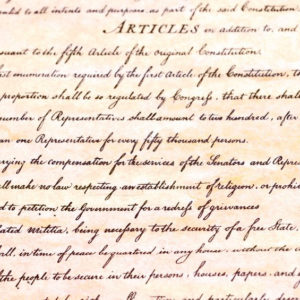 valid to all intents and purposes, as part of the said Constitution
ARTICLES in addition to, and
suant to the fifth Article of the original Constitution.
rst enumeration required by the first Article of the Constitution, t
proportion shall be so regulated by Congress, that there shal
number of Representatives shall amount to two hundred, after
an one Representative for every fifty thousand persons.
rying the compensation for the services of the Senators and Repre
ll make no law respecting an establishment of religion, or prohi
d to petition the Government for a redress of grievances
ulated militia, being necessary to the security of a free State,
hall, in time of peace be quartered in any house, without the
the people to be secure in their persons, houses, papers, and